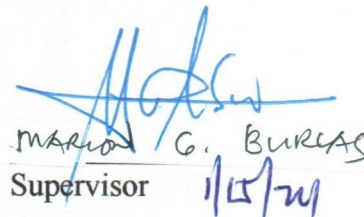 MARION G. BURGAS
Supervisor 1/15/24